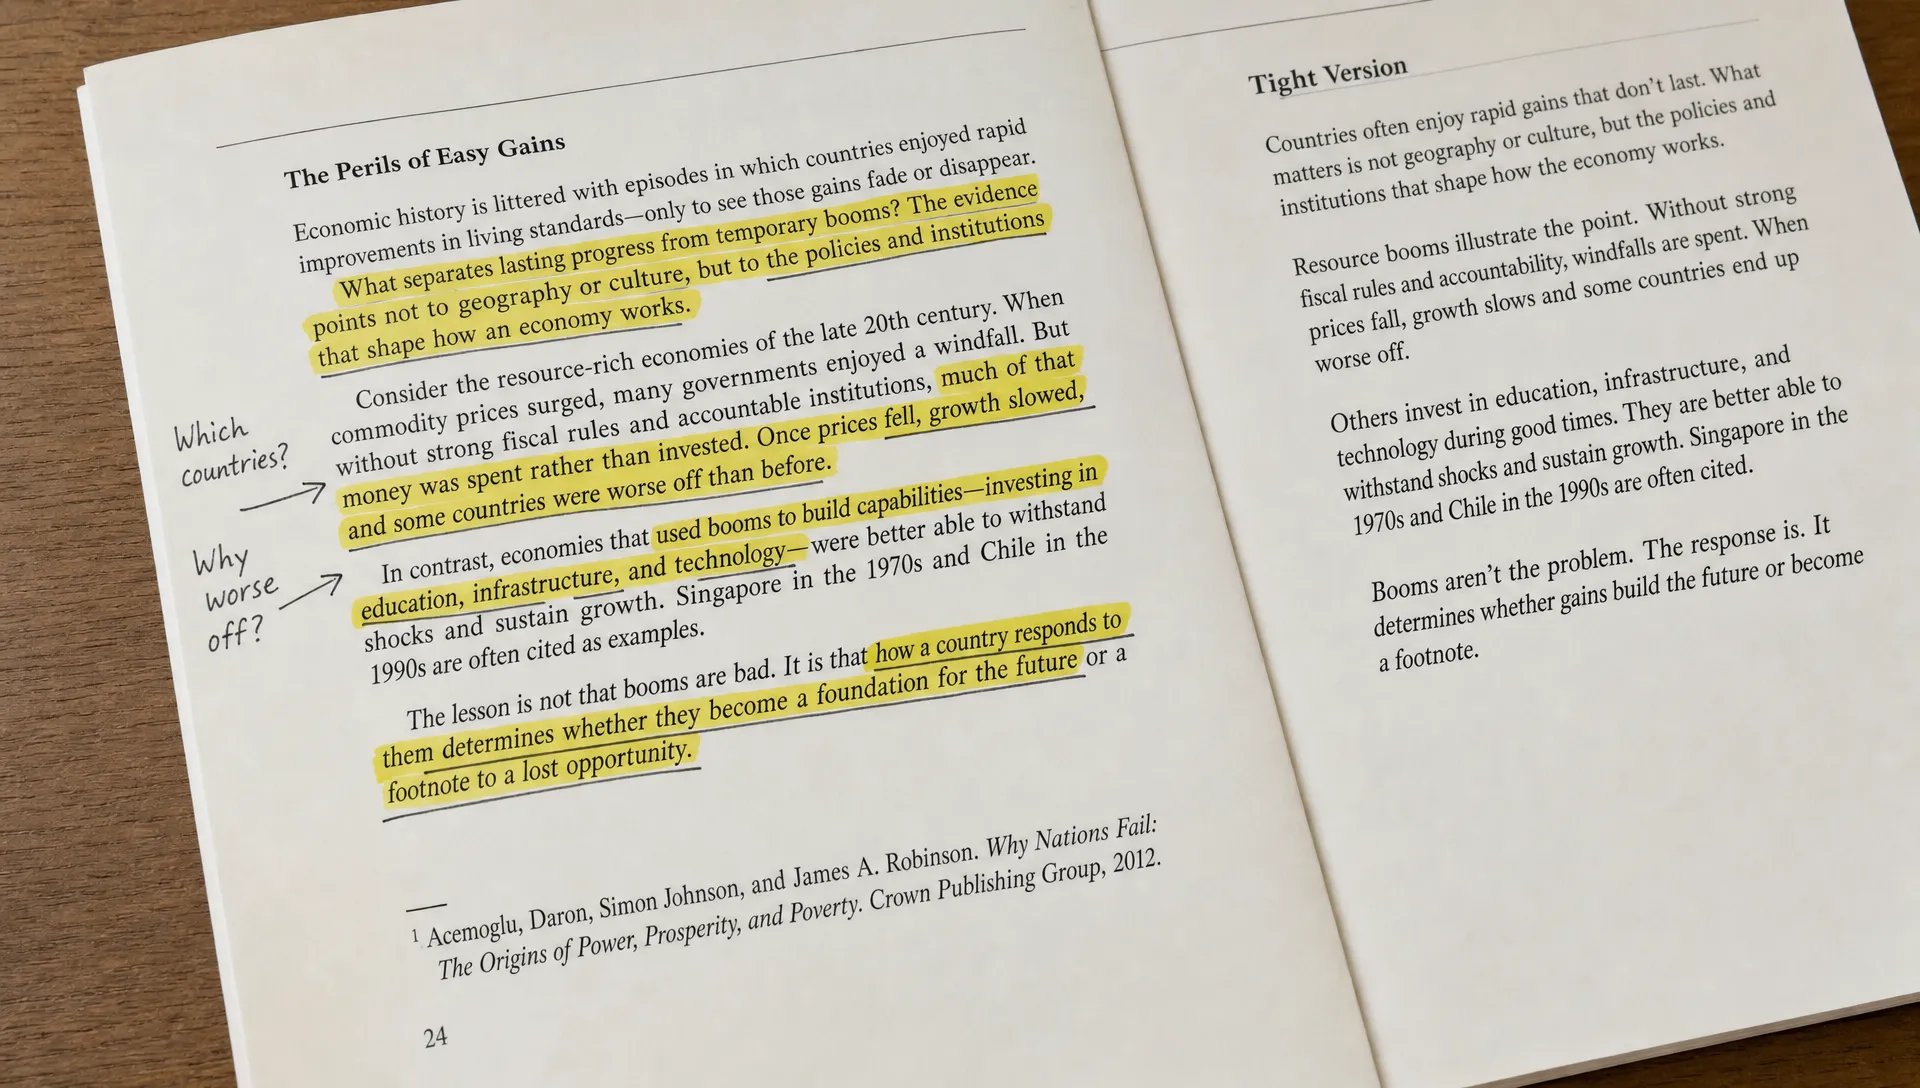 The Perils of Easy Gains
Economic history is littered with episodes in which countries enjoyed rapid
improvements in living standards—only to see those gains fade or disappear.
What separates lasting progress from temporary booms? The evidence
points not to geography or culture, but to the policies and institutions
that shape how an economy works.
Consider the resource-rich economies of the late 20th century. When
commodity prices surged, many governments enjoyed a windfall. But
without strong fiscal rules and accountable institutions, much of that
money was spent rather than invested. Once prices fell, growth slowed,
and some countries were worse off than before.
In contrast, economies that used booms to build capabilities—investing in
education, infrastructure, and technology—were better able to withstand
shocks and sustain growth. Singapore in the 1970s and Chile in the
1990s are often cited as examples.
The lesson is not that booms are bad. It is that how a country responds to
them determines whether they become a foundation for the future or a
footnote to a lost opportunity.
Which
countries?
Why
worse
off?
1 Acemoglu, Daron, Simon Johnson, and James A. Robinson. Why Nations Fail:
The Origins of Power, Prosperity, and Poverty. Crown Publishing Group, 2012.
24
Tight Version
Countries often enjoy rapid gains that don't last. What
matters is not geography or culture, but the policies and
institutions that shape how the economy works.
Resource booms illustrate the point. Without strong
fiscal rules and accountability, windfalls are spent. When
prices fall, growth slows and some countries end up
worse off.
Others invest in education, infrastructure, and
technology during good times. They are better able to
withstand shocks and sustain growth. Singapore in the
1970s and Chile in the 1990s are often cited.
Booms aren't the problem. The response is. It
determines whether gains build the future or become
a footnote.